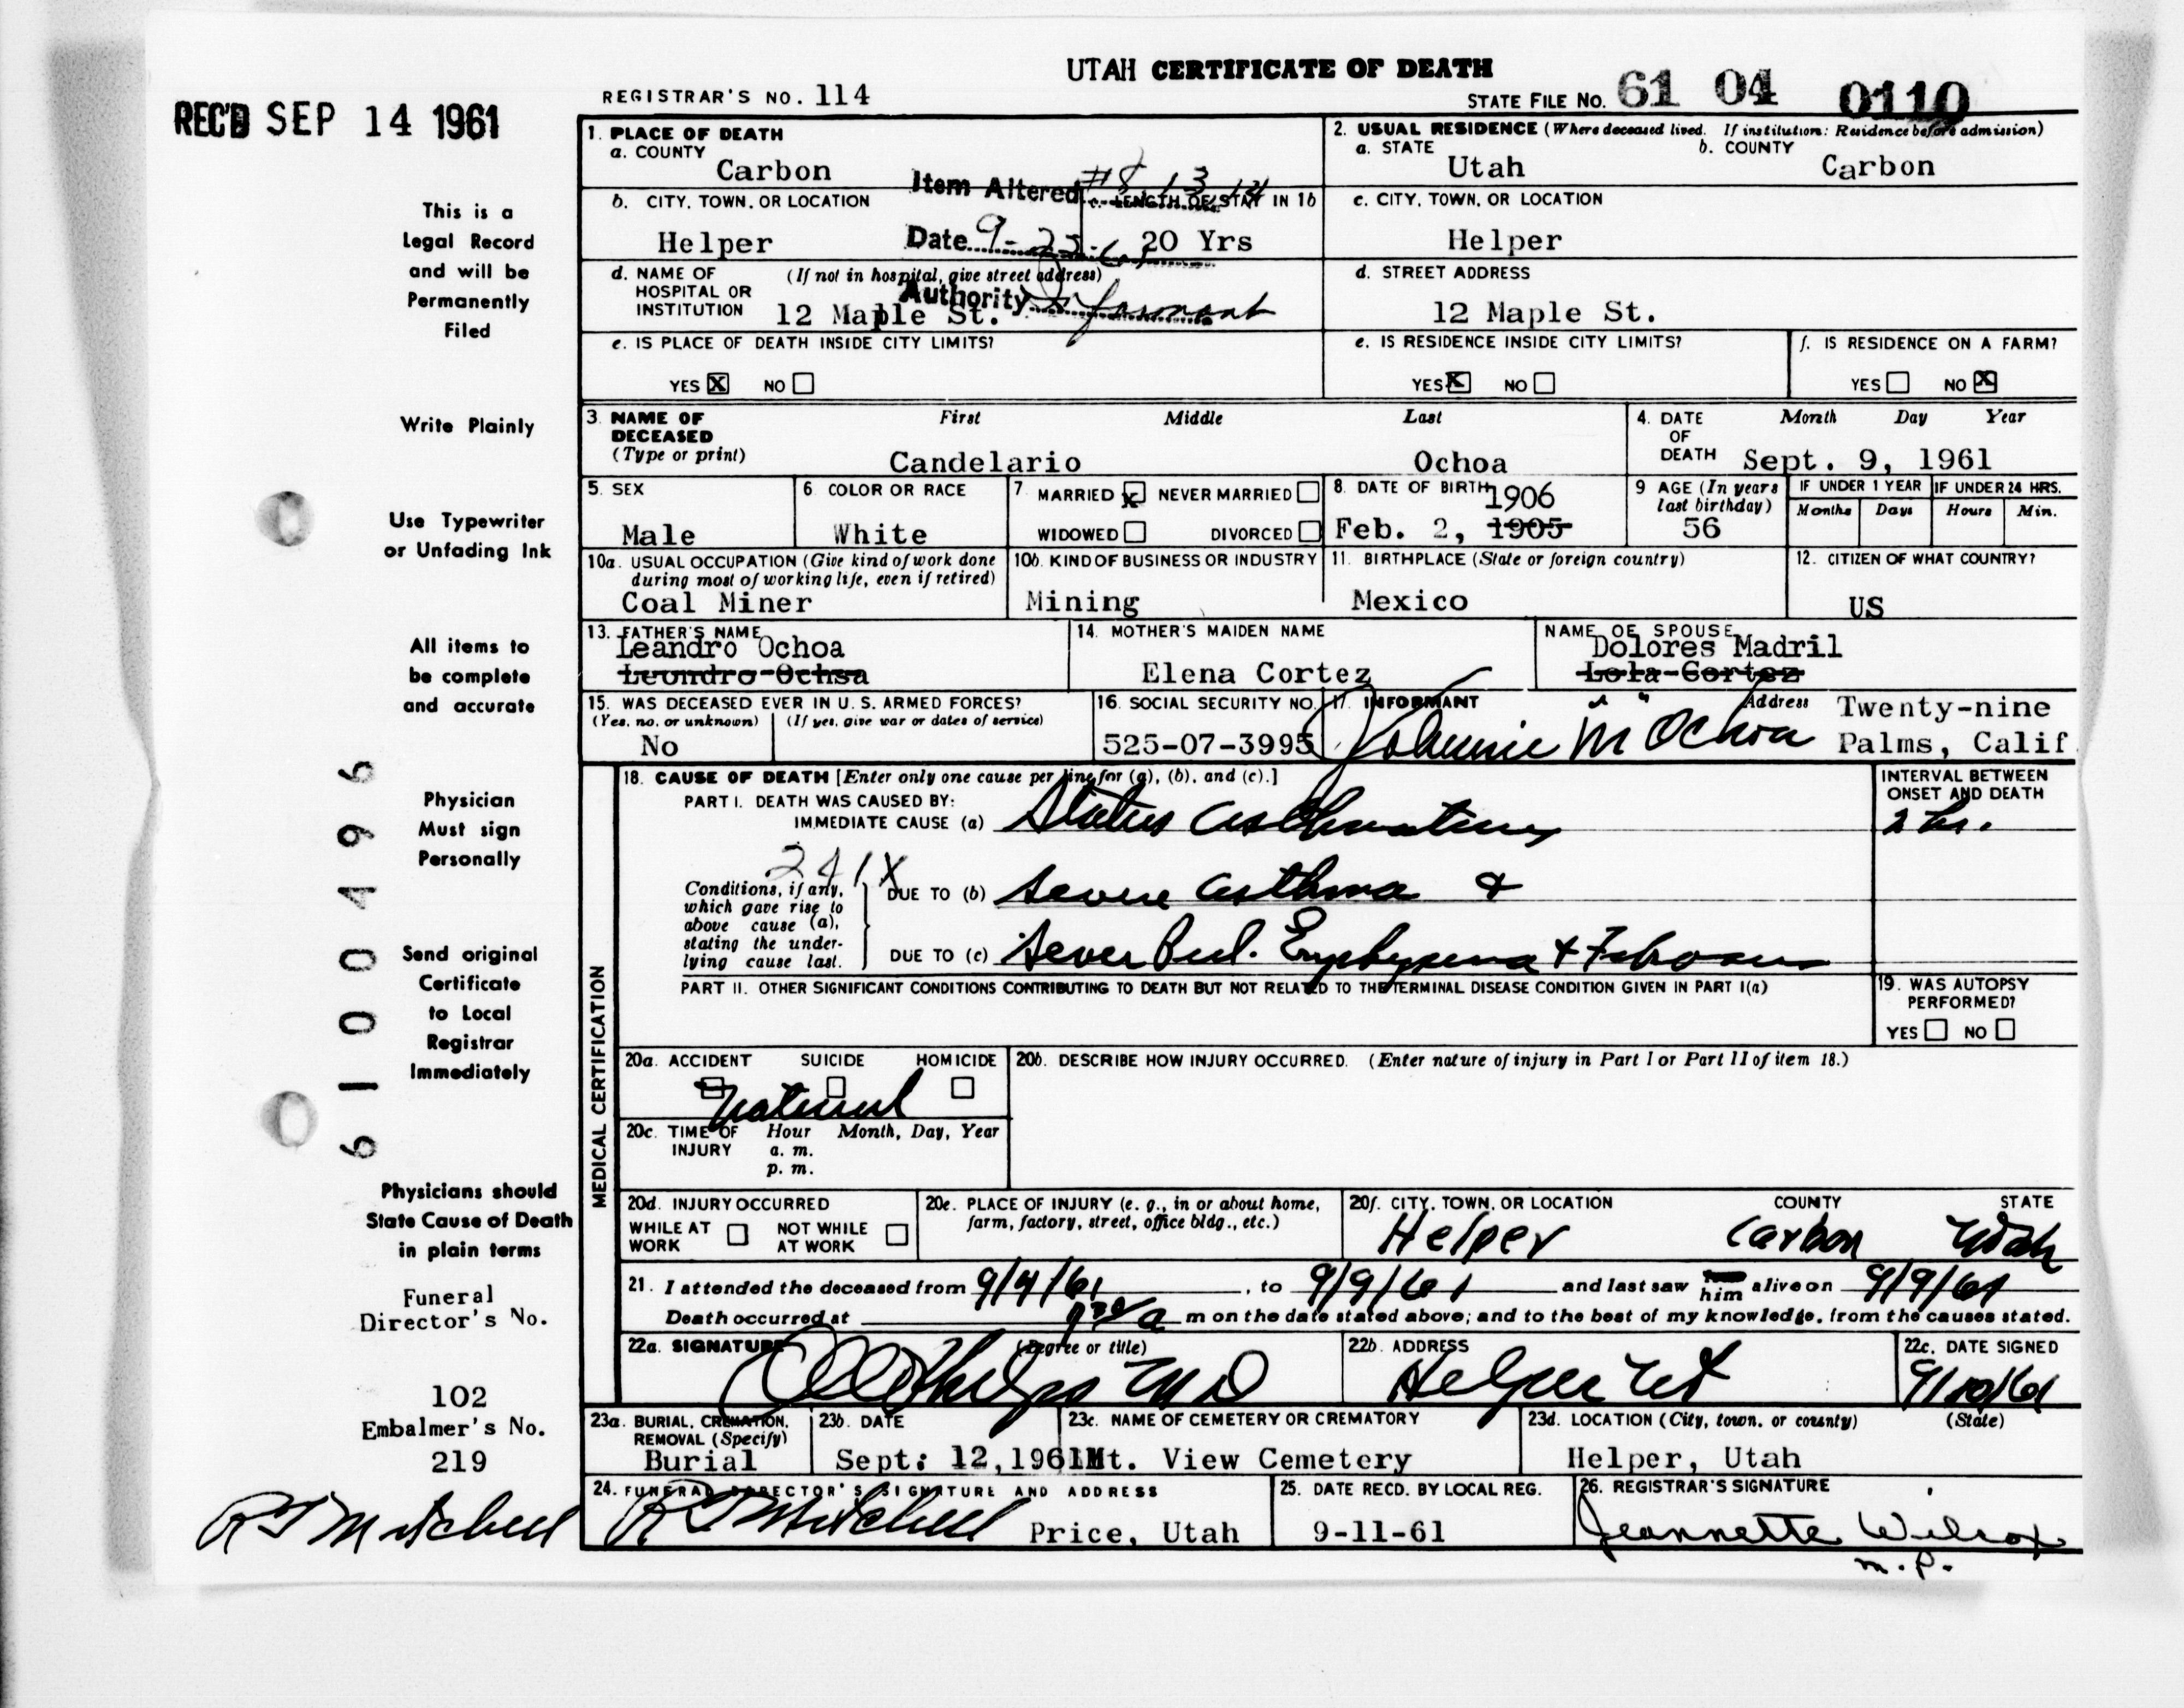 UTAH CERTIFICATE OF DEATH
REC'D SEP 14 1961
REGISTRAR'S NO. 114
STATE FILE NO. 61 04 0110
This is a
Legal Record
and will be
Permanently
Filed
Write Plainly
Use Typewriter
or Unfading Ink
All items to
be complete
and accurate
Physician
Must sign
Personally
Send original
Certificate
to Local
Registrar
Immediately
Physicians should
State Cause of Death
in plain terms
Funeral
Director's No.
102
Embalmer's No.
219
R T Mitchell
61004196
1. PLACE OF DEATH
a. COUNTY
Carbon
Item Altered #8 13 14
b. CITY, TOWN, OR LOCATION
Helper
Date 9-25-61
c. LENGTH OF STAY IN 1b
20 Yrs
d. NAME OF HOSPITAL OR INSTITUTION (If not in hospital, give street address)
12 Maple St.
Authority
e. IS PLACE OF DEATH INSIDE CITY LIMITS?
YES X NO
2. USUAL RESIDENCE (Where deceased lived. If institution: Residence before admission)
a. STATE
Utah
b. COUNTY
Carbon
c. CITY, TOWN, OR LOCATION
Helper
d. STREET ADDRESS
12 Maple St.
e. IS RESIDENCE INSIDE CITY LIMITS?
YES X NO
f. IS RESIDENCE ON A FARM?
YES NO X
3. NAME OF DECEASED (Type or print)
First Middle Last
Candelario Ochoa
4. DATE OF DEATH
Month Day Year
Sept. 9, 1961
5. SEX
Male
6 COLOR OR RACE
White
7 MARRIED X NEVER MARRIED
WIDOWED DIVORCED
8. DATE OF BIRTH
1906
Feb. 2, 1905
9 AGE (In years last birthday)
56
IF UNDER 1 YEAR
Months Days
IF UNDER 24 HRS.
Hours Min.
10a. USUAL OCCUPATION (Give kind of work done during most of working life, even if retired)
Coal Miner
10b. KIND OF BUSINESS OR INDUSTRY
Mining
11. BIRTHPLACE (State or foreign country)
Mexico
12. CITIZEN OF WHAT COUNTRY?
US
13. FATHER'S NAME
Leandro Ochoa
Leondro Ochsa
14. MOTHER'S MAIDEN NAME
Elena Cortez
NAME OF SPOUSE
Dolores Madril
Lola Cortez
15. WAS DECEASED EVER IN U. S. ARMED FORCES?
(Yes, no, or unknown) (If yes, give war or dates of service)
No
16. SOCIAL SECURITY NO.
525-07-3995
17. INFORMANT Address
Johnnie M Ochoa
Twenty-nine
Palms, Calif
MEDICAL CERTIFICATION
18. CAUSE OF DEATH [Enter only one cause per line for (a), (b), and (c).]
PART I. DEATH WAS CAUSED BY:
IMMEDIATE CAUSE (a) Status asthmaticus
INTERVAL BETWEEN ONSET AND DEATH
2 hr.
241X
Conditions, if any, which gave rise to above cause (a), stating the underlying cause last.
DUE TO (b) Severe asthma &
DUE TO (c) Sever Pul. Emphysema & Fibrosis
PART II. OTHER SIGNIFICANT CONDITIONS CONTRIBUTING TO DEATH BUT NOT RELATED TO THE TERMINAL DISEASE CONDITION GIVEN IN PART I(a)
19. WAS AUTOPSY PERFORMED?
YES NO
20a. ACCIDENT SUICIDE HOMICIDE
Natural
20b. DESCRIBE HOW INJURY OCCURRED. (Enter nature of injury in Part I or Part II of item 18.)
20c. TIME OF INJURY
Hour Month, Day, Year
a. m.
p. m.
20d. INJURY OCCURRED
WHILE AT WORK NOT WHILE AT WORK
20e. PLACE OF INJURY (e. g., in or about home, farm, factory, street, office bldg., etc.)
20f. CITY, TOWN, OR LOCATION COUNTY STATE
Helper Carbon Utah
21. I attended the deceased from 9/4/61, to 9/9/61 and last saw him alive on 9/9/61
Death occurred at a m on the date stated above; and to the best of my knowledge, from the causes stated.
22a. SIGNATURE (Degree or title)
Phelps MD
22b. ADDRESS
Helper Ut
22c. DATE SIGNED
9/10/61
23a. BURIAL, CREMATION, REMOVAL (Specify)
Burial
23b. DATE
Sept. 12, 1961
23c. NAME OF CEMETERY OR CREMATORY
Mt. View Cemetery
23d. LOCATION (City, town, or county) (State)
Helper, Utah
24. FUNERAL DIRECTOR'S SIGNATURE AND ADDRESS
R T Mitchell Price, Utah
25. DATE RECD. BY LOCAL REG.
9-11-61
26. REGISTRAR'S SIGNATURE
Jeannette Wilcox
m.p.